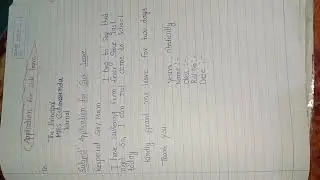 Application for Sick leave
To
The Principal
MPKS Gobananda
School
Subject Application for Sick leave
Respected Sir/Mam
I beg to say that
I have suffering from fever since last
night. So, I can not come to school
today.
Kindly grant me leave for two days
Thank you
yours obediently
Name:-
Class:-
Roll No:-
Date:-